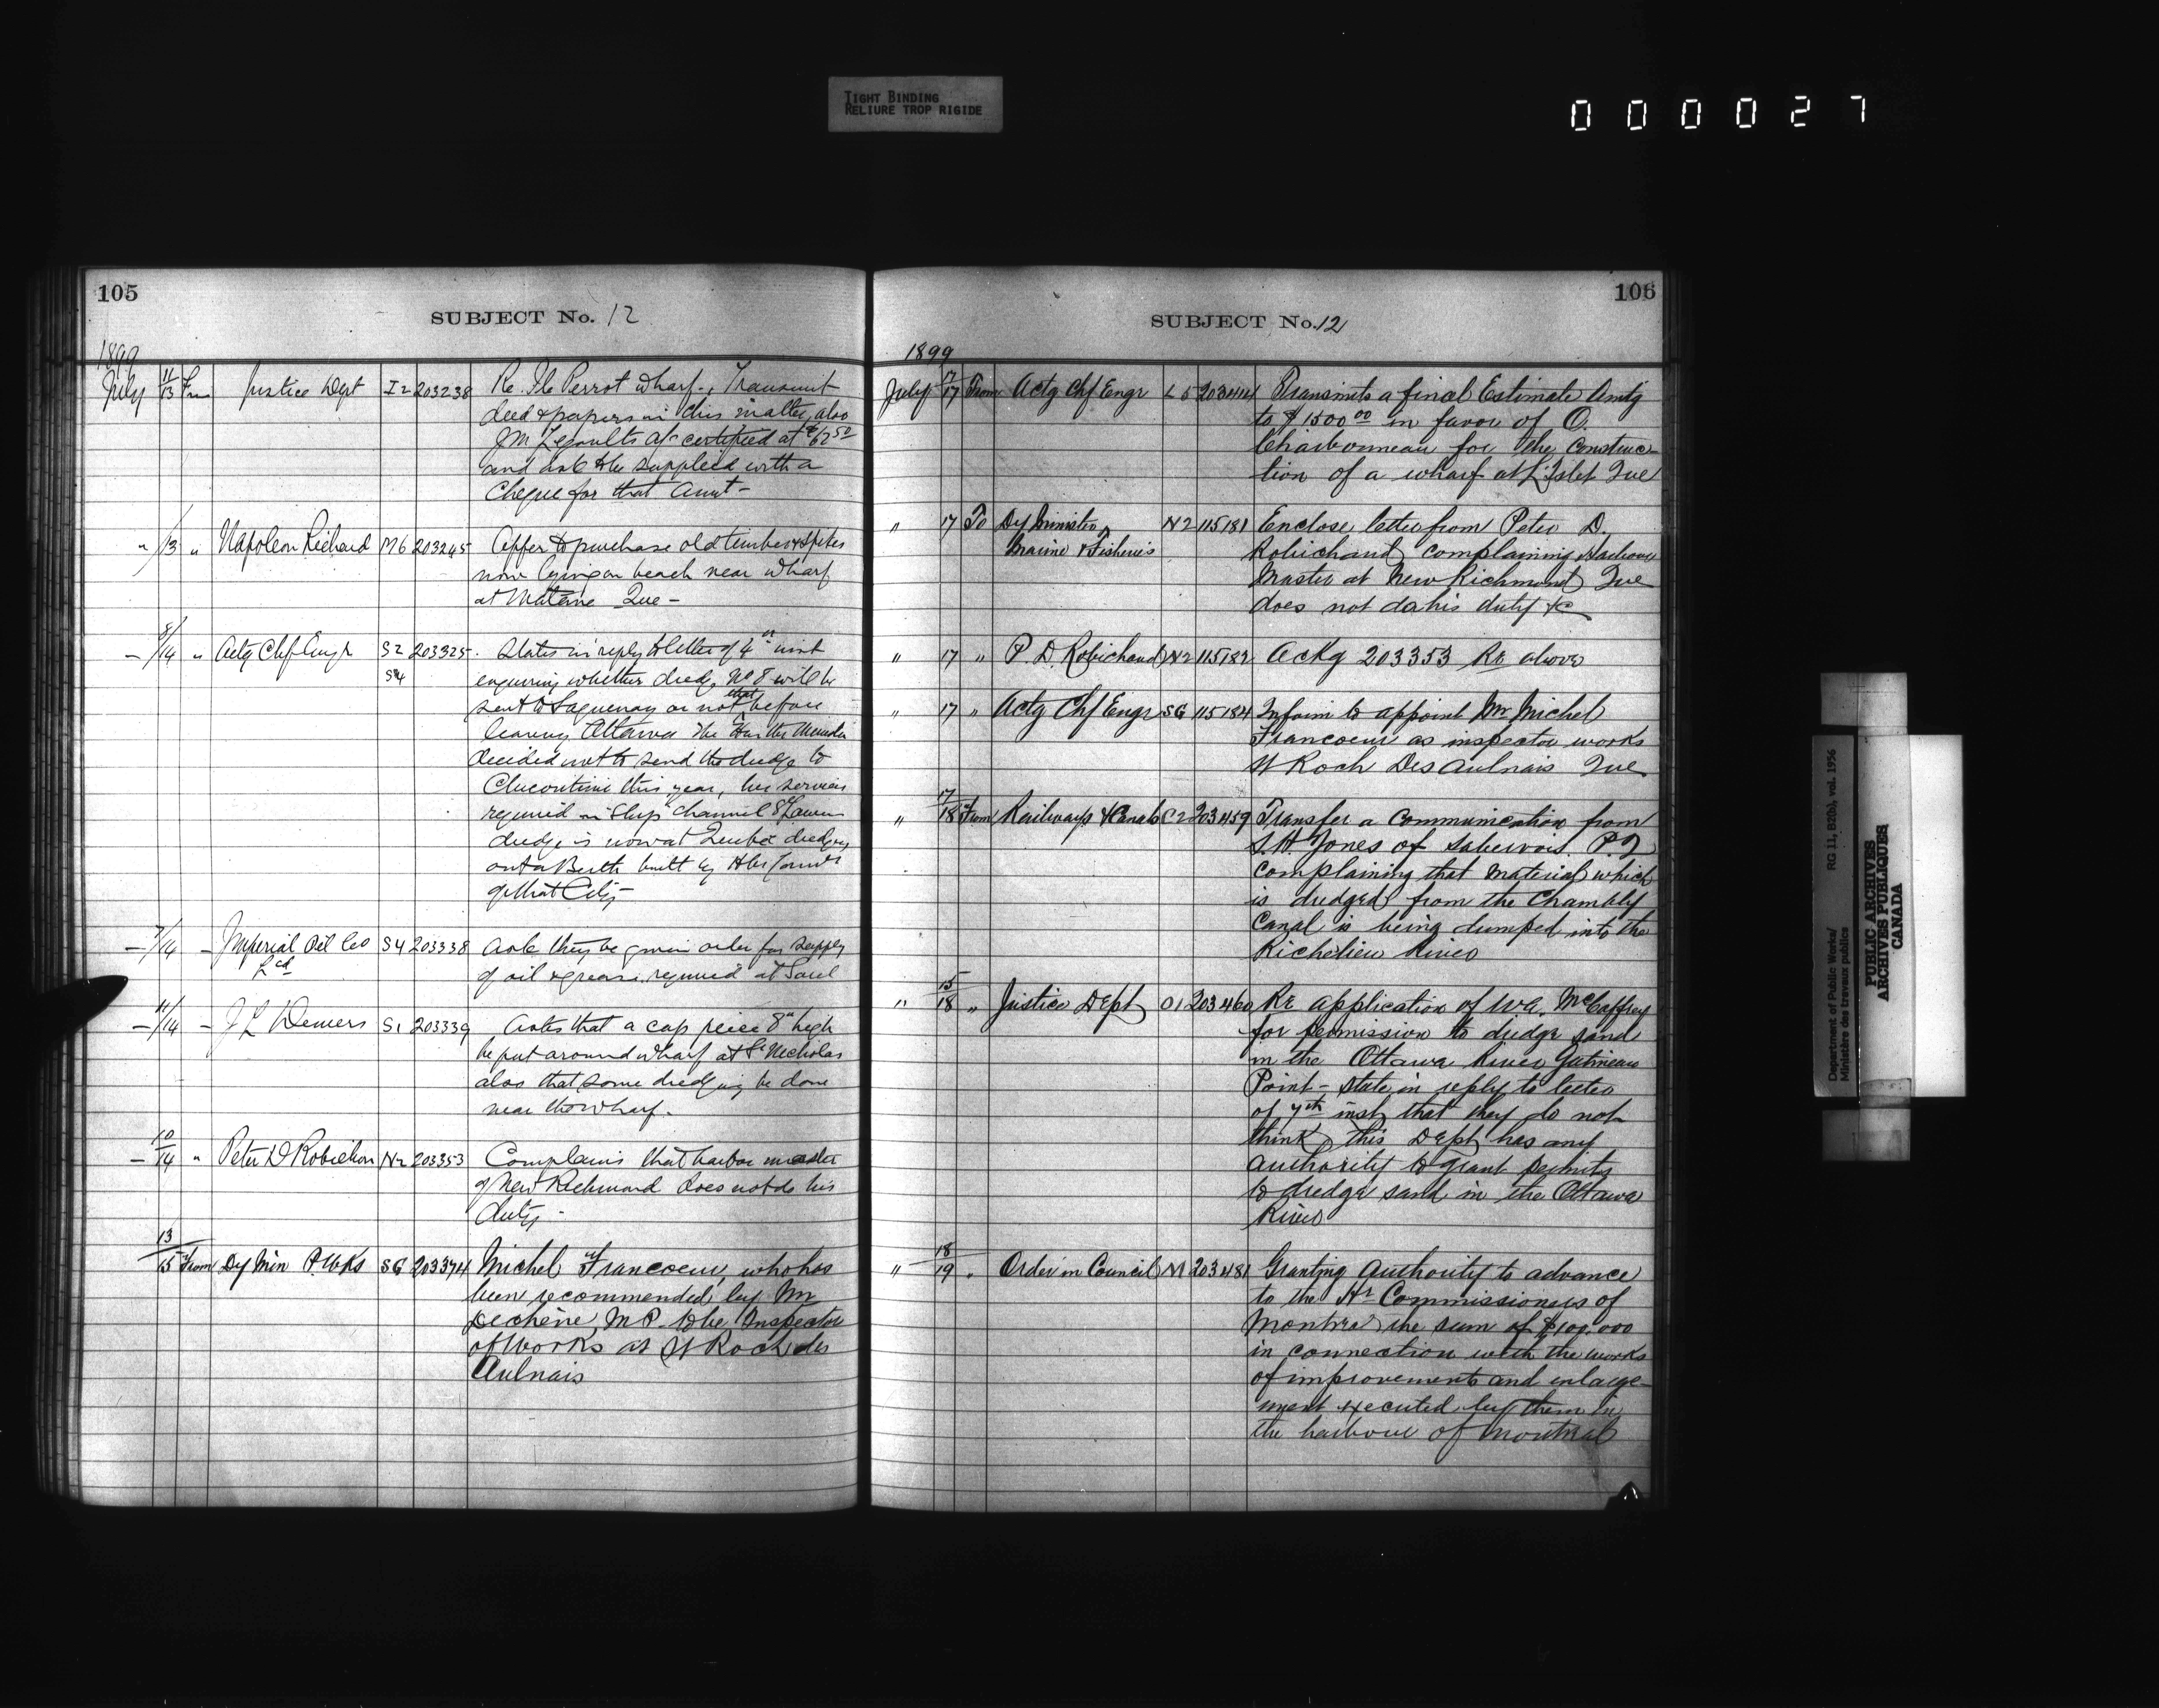 TIGHT BINDING
RELIURE TROP RIGIDE
000027
105
SUBJECT No. 12
1899
July 11/13 From Justice Dept I2 203238 Re. Ile Perrot wharf. Transmit
deed & papers in this matter, also
J M Legaults a/c certified at $62 50
and ask to be supplied with a
Cheque for that Amt -
" /13 " Napoleon Richard M6 203245 Offer to purchase old timber & spikes
now lying on beach near wharf
at Matane Que -
- 8/14 " Actg Chf Engr S2 203325. States in reply to letter of 4" inst
S4 enquiring whether dredge No 8 will be
sent to Saguenay or not that before
leaving Ottawa the Hon the Minister
decided not to send the dredge to
Chicoutimi this year, her services
required in Ship Channel St Lawr
dredge is now at Quebec dredging
out a Berth built by Hbr Comrs
of that City -
- 7/14 - Imperial Oil Co S4 203338 Ask they be given order for supply
Ltd of oil & grease required at Sorel
- 11/14 - J L Demers S1 203339 Asks that a cap piece 8" high
be put around wharf at St Nicholas
also that some dredging be done
near the wharf.
- 10/14 " Peter D Robichau N2 203353 Complains that harbor master
of New Richmond does not do his
duty -
13/15 From Dy Min P. Wks SG 203374 Michel Francoeur, who has
been recommended by Mr
Dechène M P. to be Inspector
of Works at St Roch des
Aulnais
106
SUBJECT No. 12
1899
July 17/17 From Actg Chf Engr L5 203444 Transmits a final Estimate Amtg
to $1500 00 in favor of O.
Charbonneau for the Construc-
tion of a wharf at L'Islet Que
" 17 To Dy Minister N2 115181 Enclose letter from Peter D.
Marine & Fisheries Robichaud complaining Harbour
Master at New Richmond Que
does not do his duty &c
" 17 " P. D. Robichaud N2 115182 Ackg 203353 Re above
" 17 " Actg Chf Engr SG 115184 Inform to appoint Mr Michel
Francoeur as inspector works
St Roch Des Aulnais Que
" 17/18 From Railways & Canals C2 203459 Transfer a Communication from
S. H. Jones of Sabrevois P.Q
complaining that material which
is dredged from the Chambly
Canal is being dumped into the
Richelieu River
" 15/18 " Justice Dept O1 203460 Re application of W A. McCaffrey
for permission to dredge sand
in the Ottawa River Gatineau
Point - state in reply to letter
of 7th inst that they do not
think this Dept has any
authority to grant permits
to dredge sand in the Ottawa
River
" 18/19 " Order in Council M 203481 Granting Authority to advance
to the Hr Commissioners of
Montreal the sum of $100.000
in connection with the works
of improvements and enlarge-
ment executed by them in
the harbour of Montreal
Department of Public Works/ RG 11, B2(b), vol. 1956
Ministère des travaux publics
PUBLIC ARCHIVES
ARCHIVES PUBLIQUES
CANADA